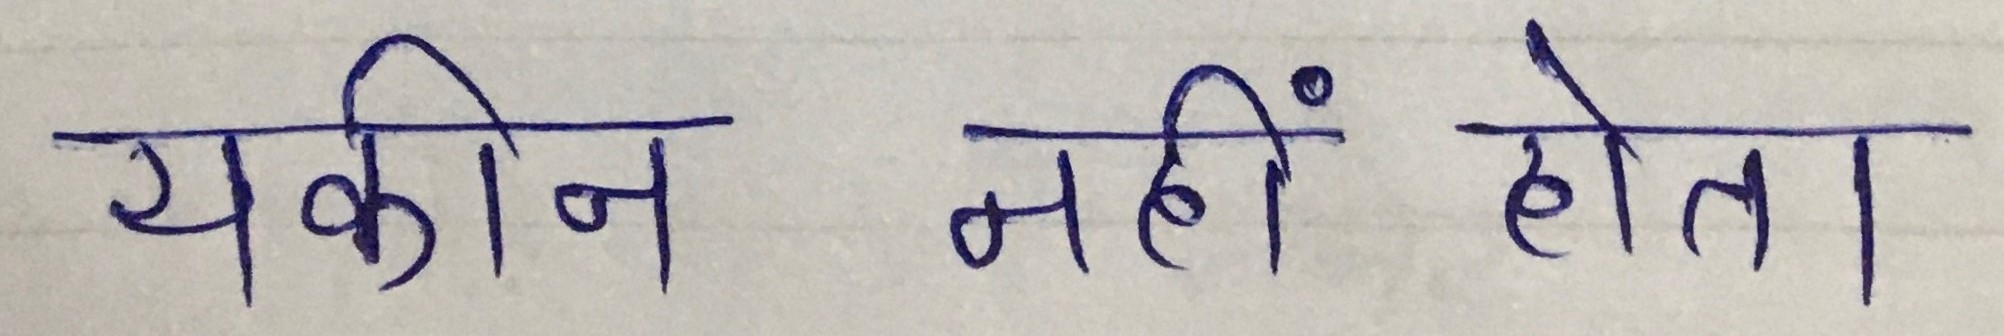 यकीन नहीं होता